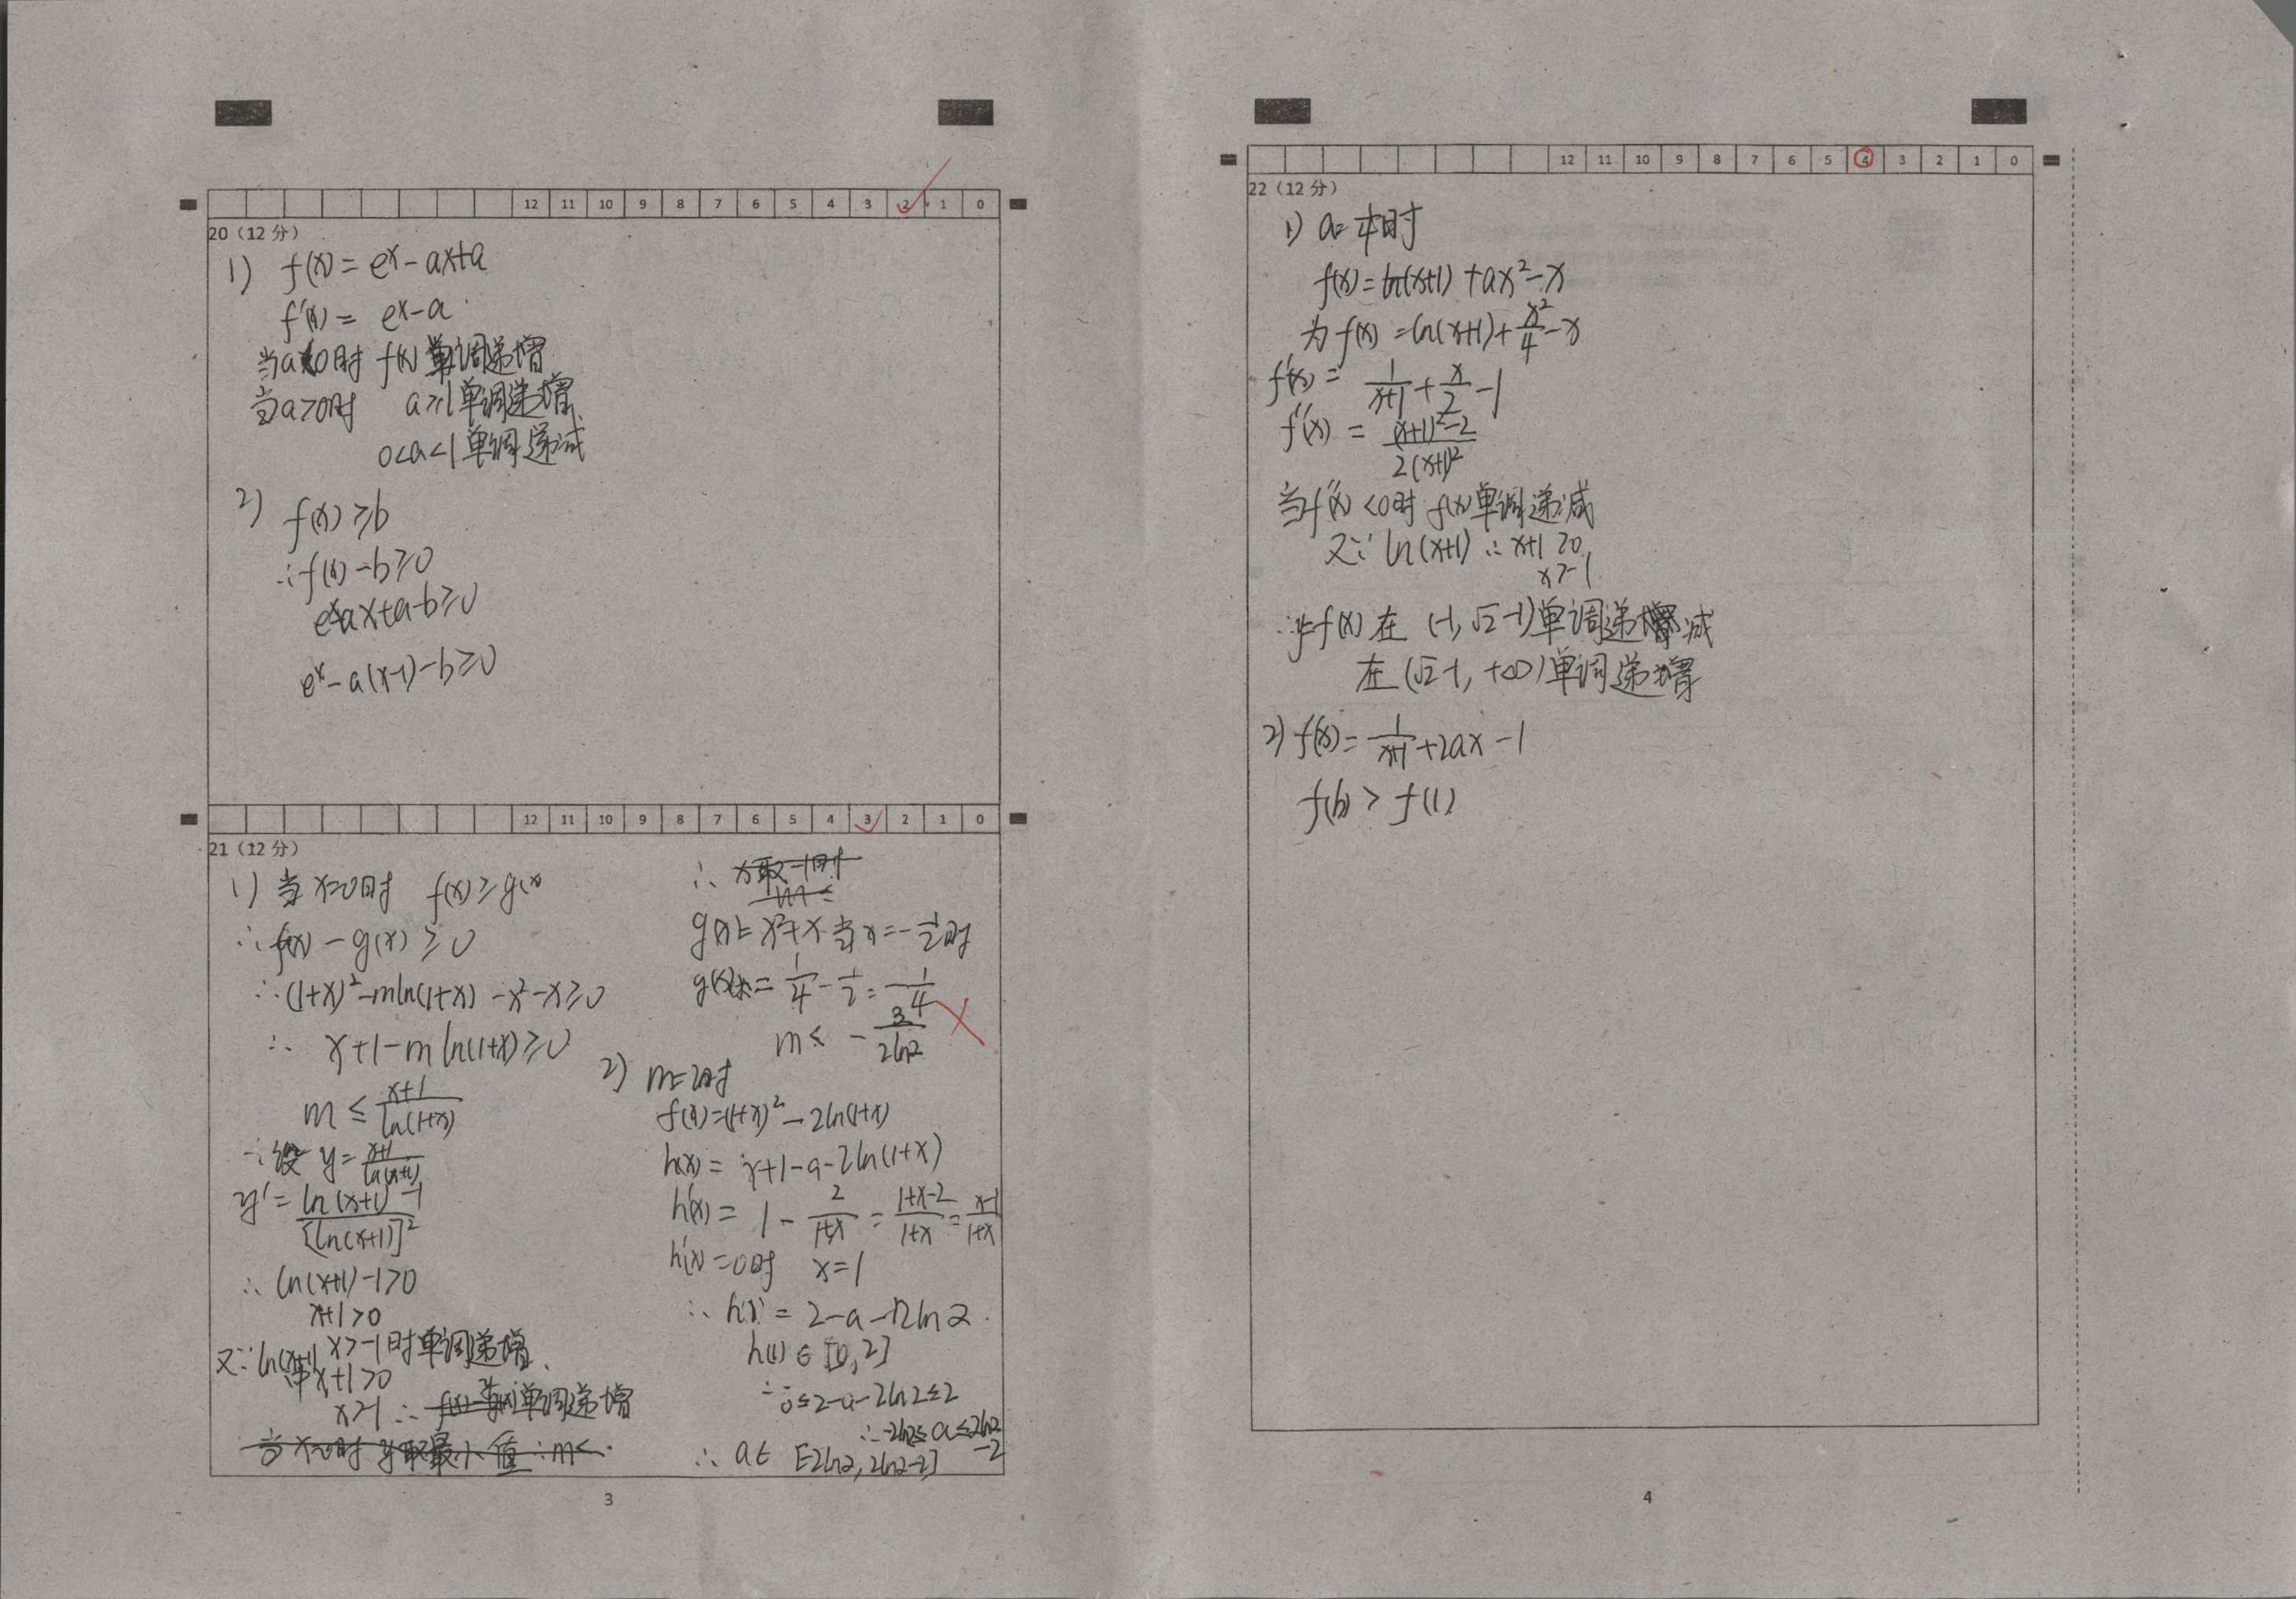 12 11 10 9 8 7 6 5 4 3 2 1 0
20（12 分）
1) f(x) = eˣ - ax+a
f'(x) = eˣ-a
当a<0时 f(x) 单调递增
当a>0时 a≥1单调递增
0<a<1单调递减
2) f(x) ≥b
∴f(x) -b≥0
eˣ-ax+a-b≥0
eˣ-a(x-1)-b≥0
12 11 10 9 8 7 6 5 4 3 2 1 0
21（12 分）
1) 当 x>0时 f(x) ≥g(x)
∴ f(x) - g(x) ≥0
∴ (1+x)²-mln(1+x) -x²-x≥0
∴ x+1-m ln(1+x)≥0
m ≤ (x+1)/ln(1+x)
∴设 y= (x+1)/ln(x+1)
y' = (ln(x+1)-1)/[ln(x+1)]²
∴ ln(x+1)-1>0
x+1>0
x>-1时单调递增
又∵ln(x+1)
x+1>0
x>-1 ∴ 单调递增
当x=0时 y取最小值 ∴m<
∴ x取-1时
m≤
g(x)= x²+x 当x=-1/2时
= 1/4 - 1/2 = -1/4
m≤ - 3/(2ln2)
2) m=2时
f(x)=(1+x)²-2ln(1+x)
h(x)= x+1-a-2ln(1+x)
h'(x) = 1- 2/(1+x) = (1+x-2)/(1+x) = (x-1)/(1+x)
h'(x)=0时 x=1
∴ h(1) = 2-a-2ln2
h(1) ∈ [0,2]
∴ 0≤2-a-2ln2≤2
∴ -2ln2≤ a ≤2ln2-2
∴ a∈ [-2ln2, 2ln2-2]
3
12 11 10 9 8 7 6 5 4 3 2 1 0
22（12 分）
1) a= 1/4时
f(x)=ln(x+1) +ax²-x
为 f(x) =ln(x+1)+ x²/4 -x
f'(x) = 1/(x+1) + x/2 -1
f''(x) = ((x+1)²-2)/(2(x+1)²)
当f''(x) <0时 f(x)单调递减
又∵ ln(x+1) ∴ x+1 >0
x>-1
∴y=f(x) 在 (-1,√2-1)单调递减
在 (√2-1, +∞)单调递增
2) f'(x)= 1/(x+1) +2ax-1
f(b) > f(1)
4